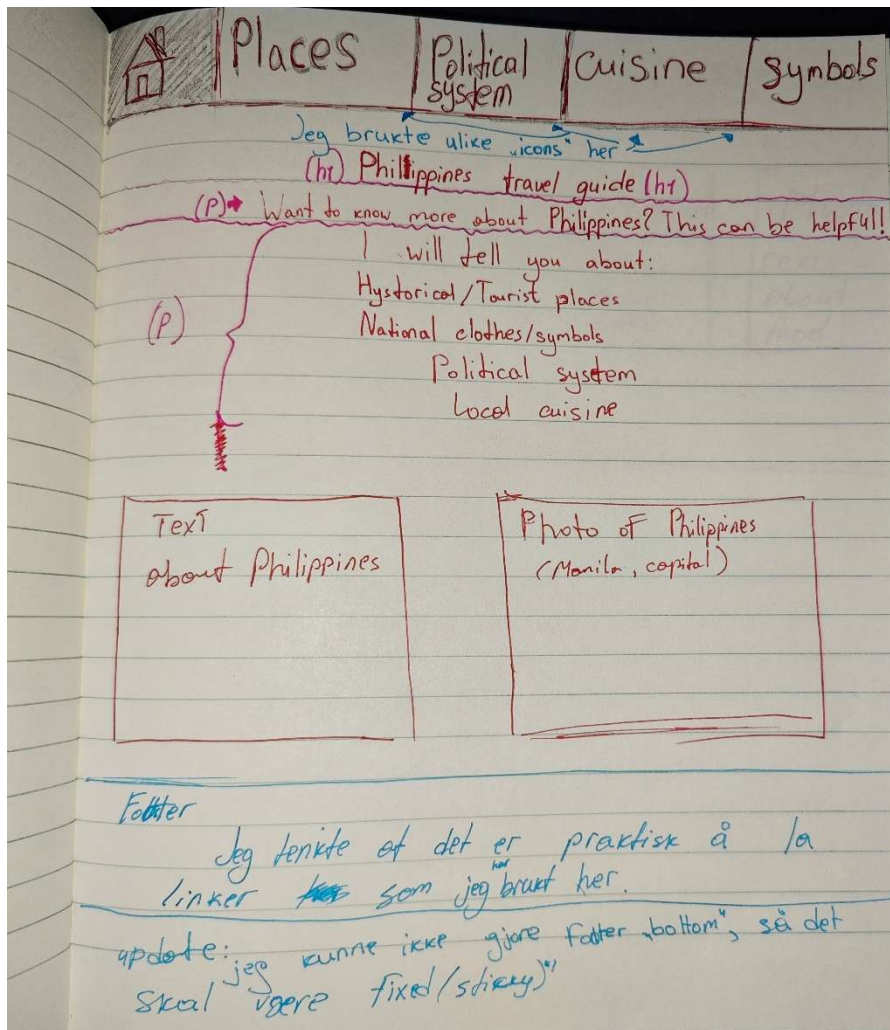 Places
Political system
Cuisine
Symbols
Jeg brukte ulike „icons" her
(h1) Philippines travel guide (h1)
(p) Want to know more about Philippines? This can be helpful!
I will tell you about:
(p)
Hystorical/Tourist places
National clothes/symbols
Political system
Local cuisine
Text
about Philippines
Photo of Philippines
(Manila, capital)
Footer
Jeg tenkte at det er praktisk å la
linker som jeg har brukt her.
update: jeg kunne ikke gjøre footer „bottom", så det
skal være fixed/sticky)